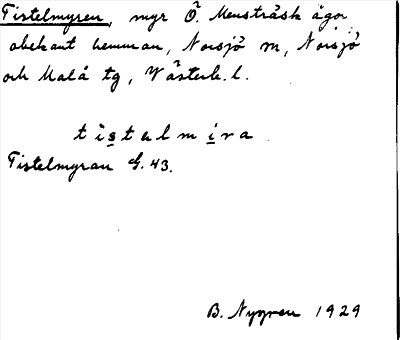 Tistelmyren, myr Ö. Mensträsk ägor
obekant hemman, Norsjö sn, Norsjö
och Malå tg, Västerb. l.
tistelmira
Tistelmyran G. 43.
B. Nygren 1929